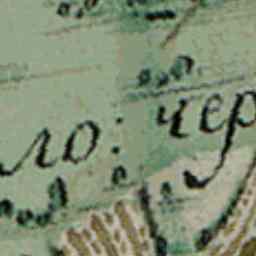 ло: чер